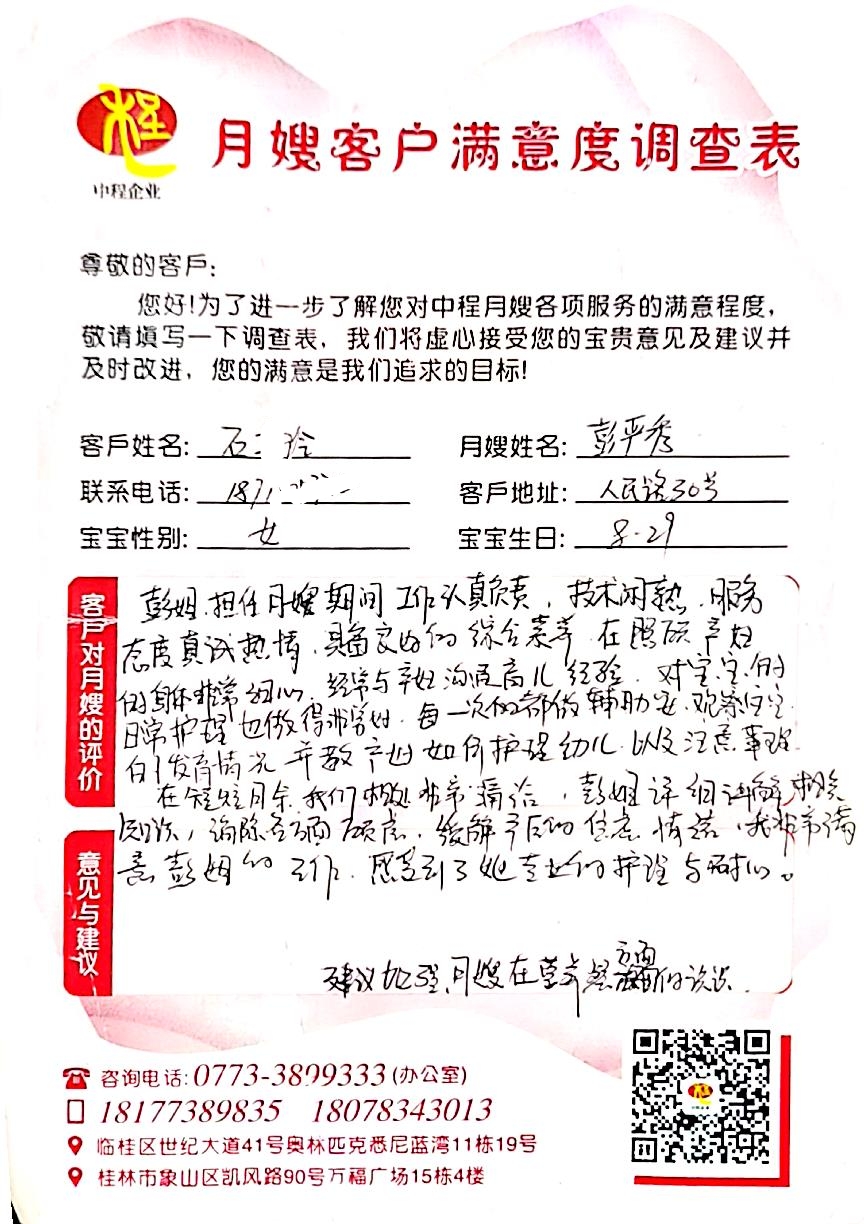 程
中程企业
月嫂客户满意度调查表
尊敬的客户:
您好!为了进一步了解您对中程月嫂各项服务的满意程度,
敬请填写一下调查表,我们将虚心接受您的宝贵意见及建议并
及时改进,您的满意是我们追求的目标!
客户姓名: 石 玲
月嫂姓名: 彭平秀
联系电话: 1871
客户地址: 人民路30号
宝宝性别: 女
宝宝生日: 8.29
客户对月嫂的评价
彭姐担任月嫂期间工作认真负责,技术闲熟,服务
态度真诚热情,具备良好的综合素养,在照顾产妇
的身体非常细心,经常与产妇沟通育儿经验,对宝宝的
日常护理也做得非常好,每一次的都做辅助,观察宝宝
的发育情况并教产妇如何护理幼儿以及注意事项
在短短月余我们相处非常融洽,彭姐详细讲解相关
知识,消除各项顾虑,缓解产后的焦虑情绪,我非常满
意彭姐的工作,感受到了她专业的护理与耐心。
意见与建议
建议加强月嫂在营养餐方面的知识.
咨询电话: 0773-3899333 (办公室)
18177389835 18078343013
临桂区世纪大道41号奥林匹克悉尼蓝湾11栋19号
桂林市象山区凯风路90号万福广场15栋4楼